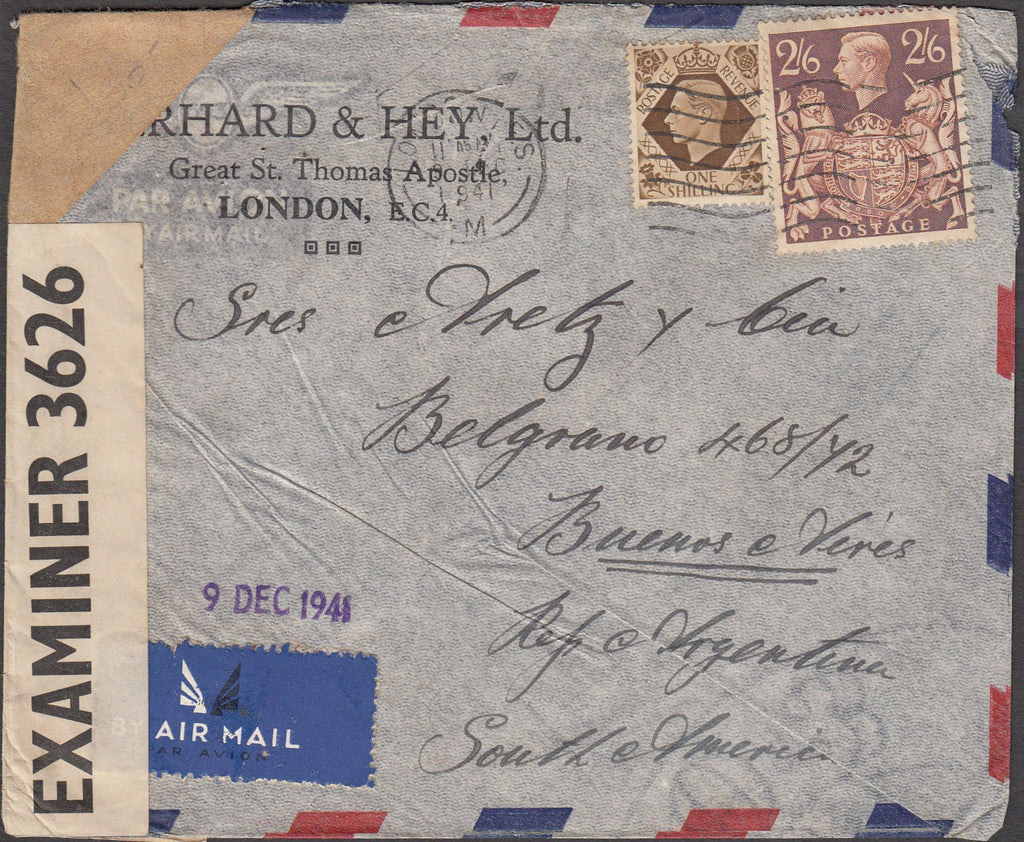 RHARD & HEY, Ltd.
Great St. Thomas Apostle,
LONDON, E.C.4.
PAR AVION
BY AIR MAIL
POSTAGE REVENUE
ONE SHILLING
2/6 2/6
POSTAGE
1941
Sres Aretz y Cia
Belgrano 468/72
Buenos Aires
Rep Argentina
South America
EXAMINER 3626
9 DEC 1941
BY AIR MAIL
PAR AVION